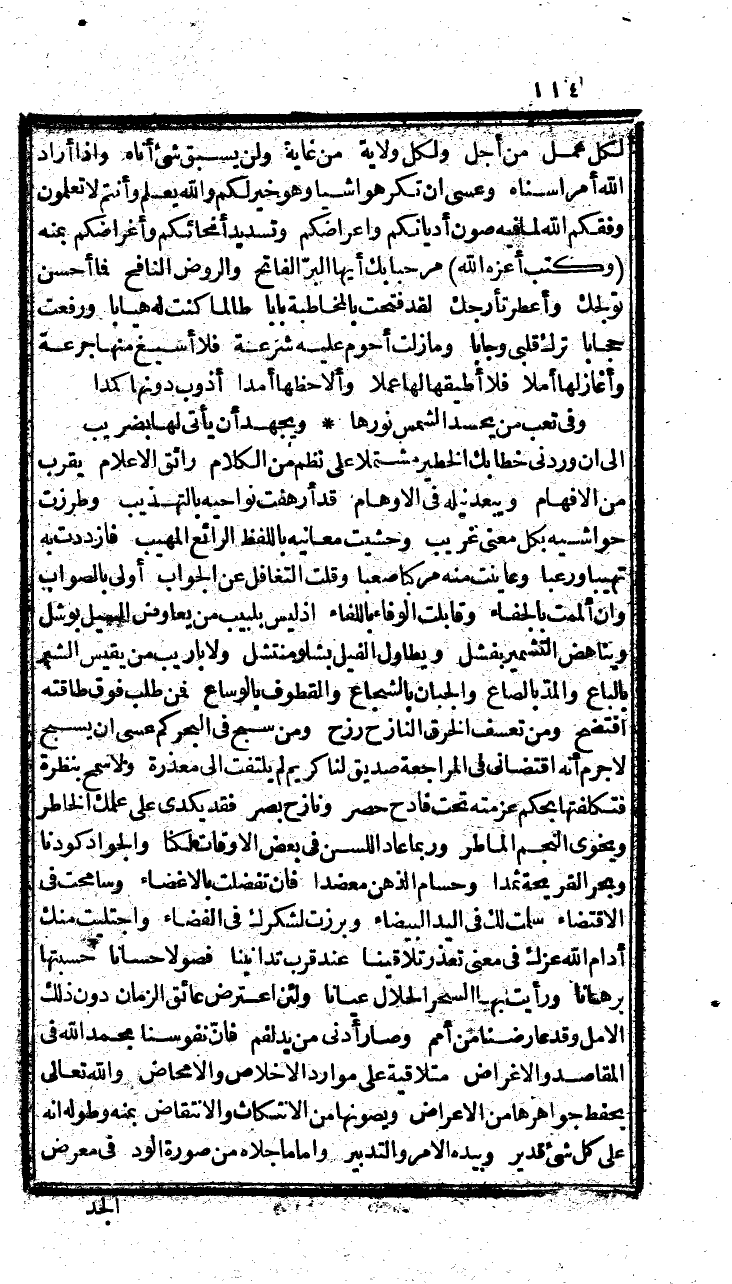 ١١٤
لكل عمل من أجل ولكل ولاية من غاية ولن يسبق شئ أناه واذا أراد
الله أمرا سناه وعسى ان تكرهوا شيا وهو خير لكم والله يعلم وأنتم لا تعلمون
وفقكم الله لما فيه صون أديانكم واعراضكم وتسديد أنحائكم وأغراضكم بمنه
(وكتب أعزه الله) مرحبا بك أيها البر الفاتح والروض النافح فما أحسن
تولجك وأعطر تأرجك لقد فتحت بالمخاطبة بابا طالما كنت له هيابا ورفعت
حجابا ترك قلبى وجابا ومازلت أحوم عليه شرعة فلا أسيغ منها جرعة
وأغازلها أملا فلا أطيقها لها عملا وألاحظها أمدا أذوب دونها كمدا
وفى تعب من يحسد الشمس نورها * ويجهد أن يأتى لها بضريب
الى ان وردنى خطابك الخطير مشتملا على نظم من الكلام رائق الاعلام يقرب
من الافهام ويبعد نيله فى الاوهام قد أرهفت نواحيه بالتهذيب وطرزت
حواشيه بكل معنى غريب وحشيت معانيه باللفظ الرائع المهيب فازددت به
تهيبا ورعبا وعاينت منه مركبا صعبا وقلت التغافل عن الجواب أولى بالصواب
وان ألممت بالجفاء وقابلت الوفاء باللفاء اذ ليس بلبيب من يعاوض السيل بوشل
ويناهض التشمير بفشل ويطاول الفيل بشلو منتشل ولا باريب من يقيس الشبر
بالباع والمد بالصاع والجبان بالشجاع والقطوف بالوساع فمن طلب فوق طاقته
افتضح ومن تعسف الخرق النازح رزح ومن سبح فى البحر كم عسى ان يسبح
لا جرم أنه اقتضانى فى المراجعة صديق لنا كريم لم يلتفت الى معذرة ولا سمح بنظرة
فتكلفتها بحكم عزمته تحت فادح حصر ونازح بصر فقد يكدى على علمك الخاطر
ويخوى النجم الماطر وربما عاد اللسن فى بعض الاوقات لكنا والجواد كودنا
وبحر القريحة ثمدا وحسام الذهن معضدا فان تفضلت بالاغضاء وسامحت فى
الاقتضاء سلمت لك فى اليد البيضاء وبرزت لشكرك فى الفضاء واجتليت منك
أدام الله عزك فى معنى تعذر تلاقينا عند قرب تدانينا فصولا حسانا حسبتها
برهانا ورأيت بها السحر الحلال عيانا ولئن اعترض عائق الزمان دون ذلك
الامل وقد عارضنا من أمم وصار أدنى من يد لفم فان نفوسنا بحمد الله فى
المقاصد والاغراض متلاقية على موارد الاخلاص والامحاض والله تعالى
يحفظ جواهرها من الاعراض ويصونها من الانتكاث والانتقاض بمنه وطوله انه
على كل شئ قدير وبيده الامر والتدبير واما ما جلاه من صورة الود فى معرض
الجد